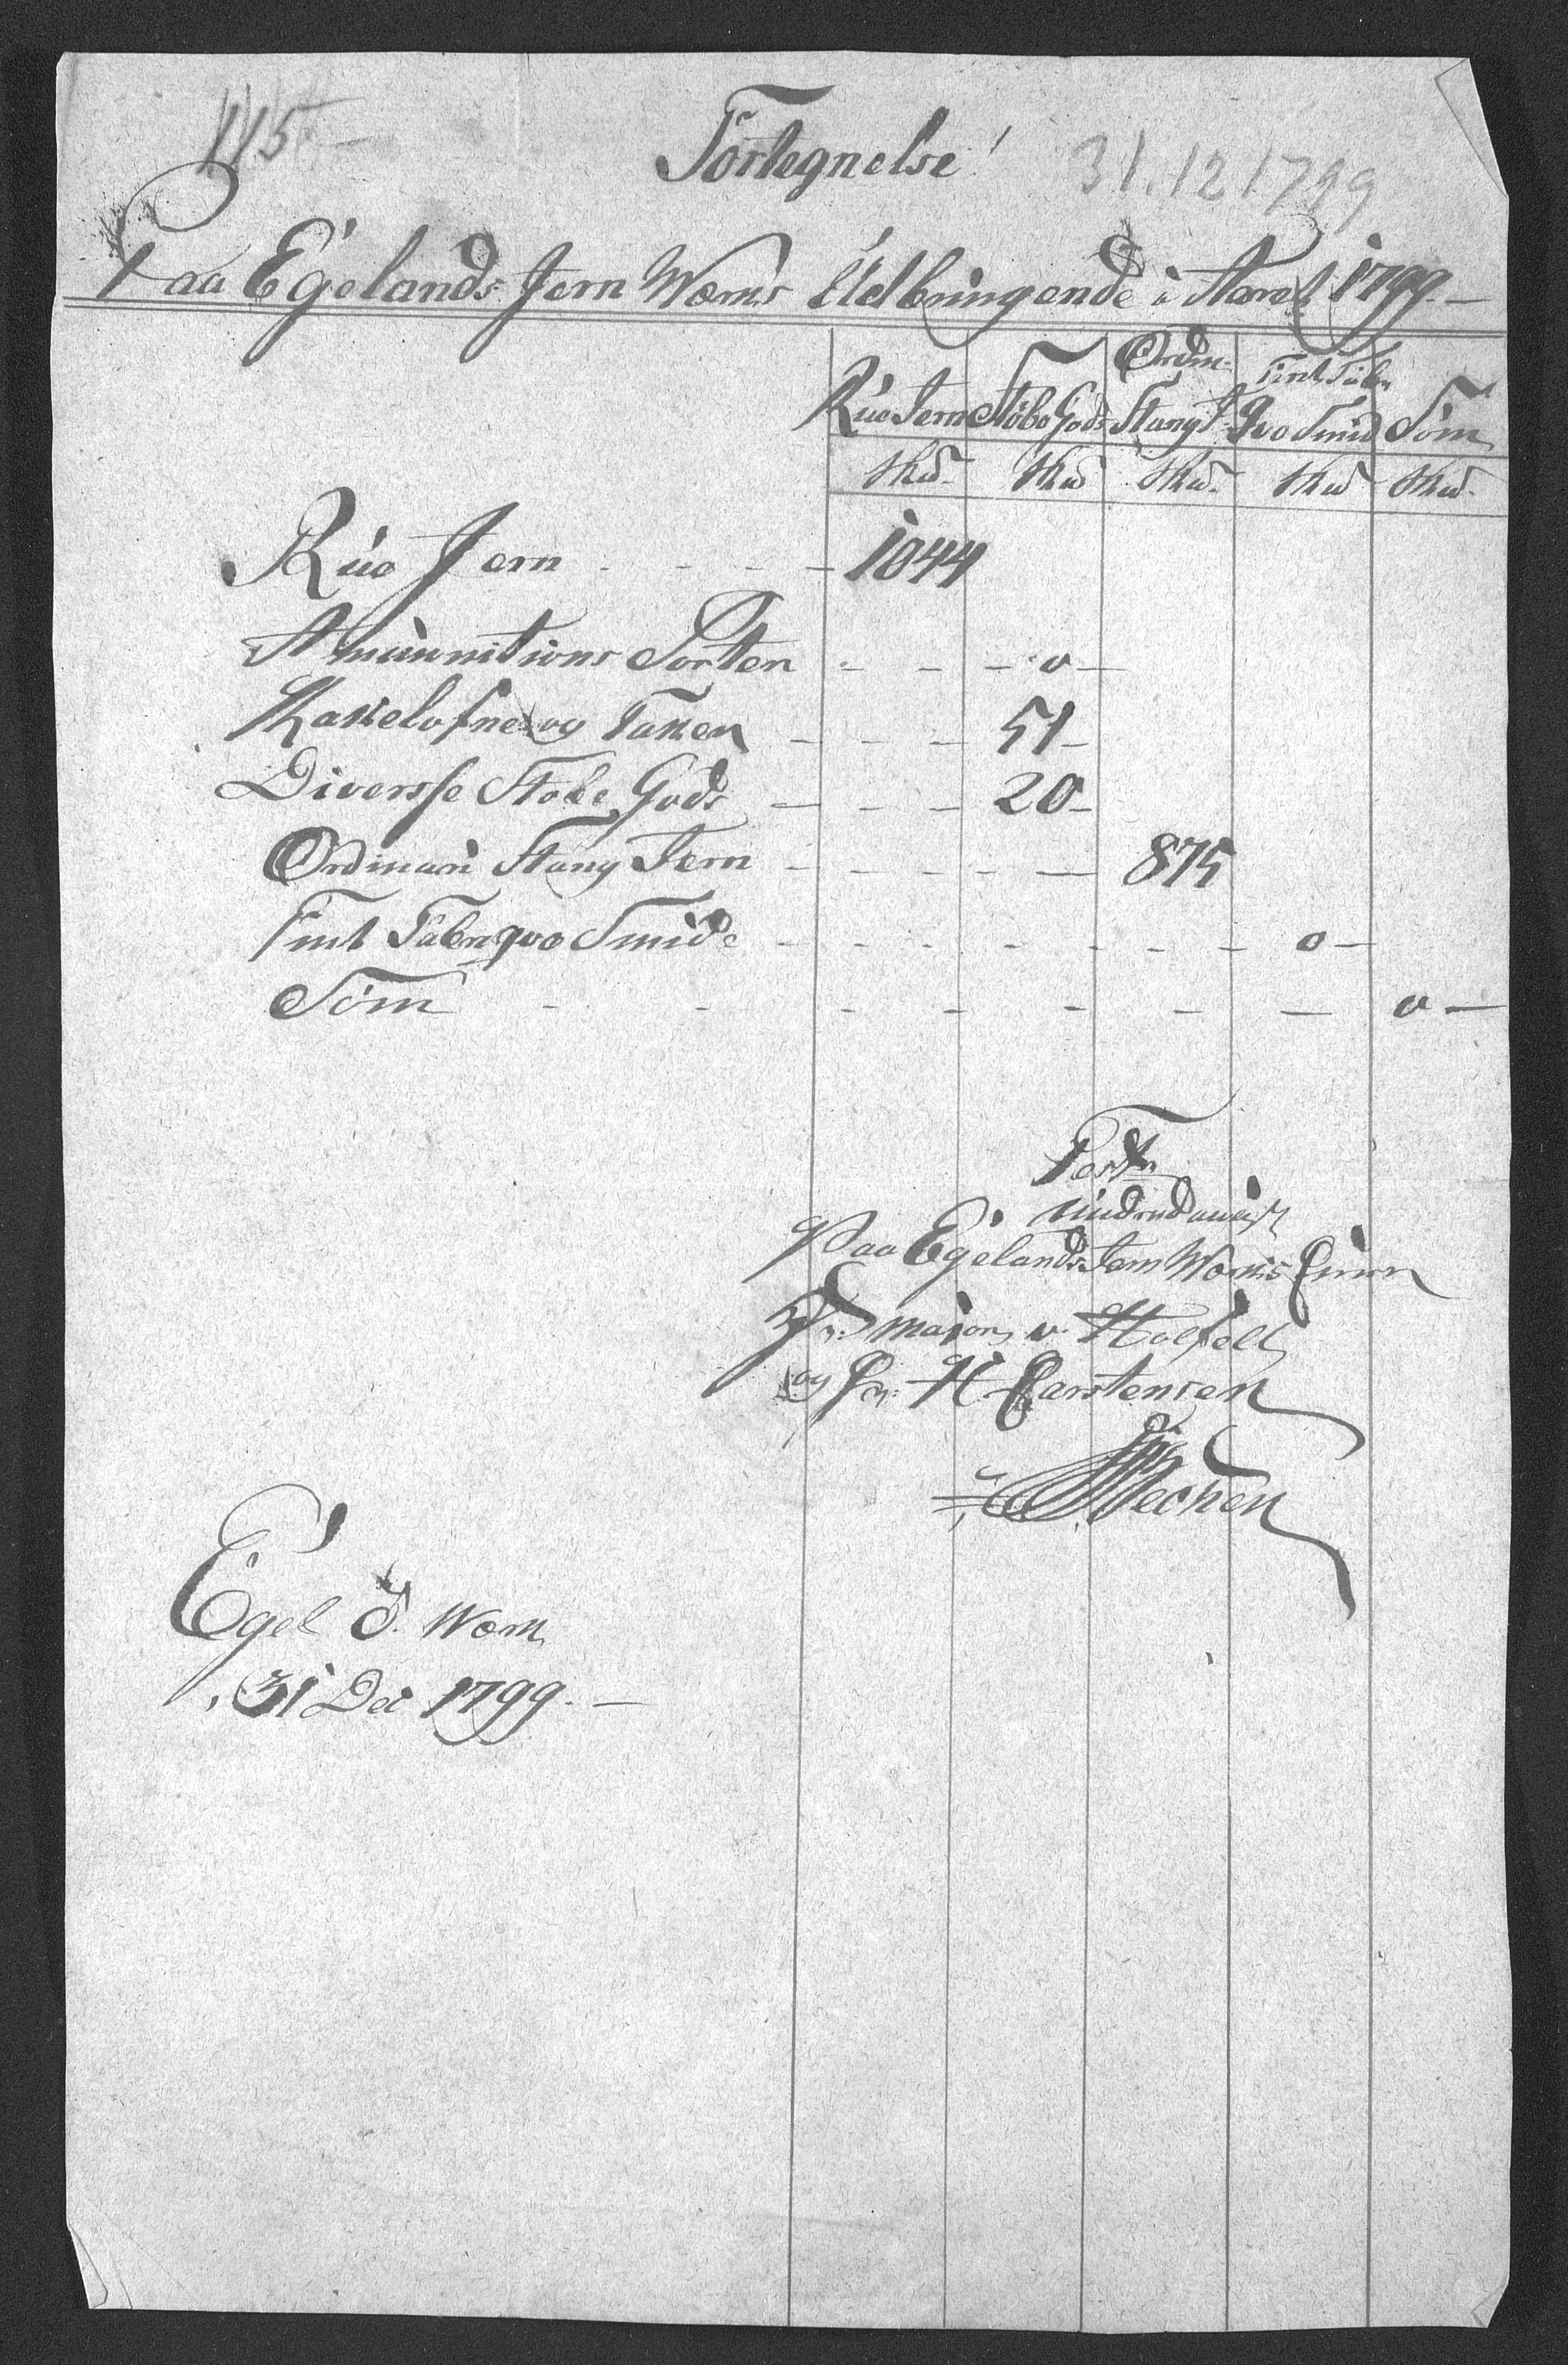 115
Fortegnelse
31.12 1799
Paa Egelands Jern Værks Udbringende i Aaret 1799.
Rue Jern Støbe Gods Ordin: Stang J. Fint Fabrn Qvo Smid Søm
Skd. Skd Skd. Skd Skd.
Rue Jern 1044
Amunnitions Sorten 0
Kakelofne og Takker 51
Diversse Støbe Gods 20
Ordinari Stang Jern 875
Fint Fabrnqvo Smide 0
Søm 0
Paa Egelands Jern Værks
major v. Holfelt
og Hr: H Carstensen
Egel J. Værk
31 Dec 1799.